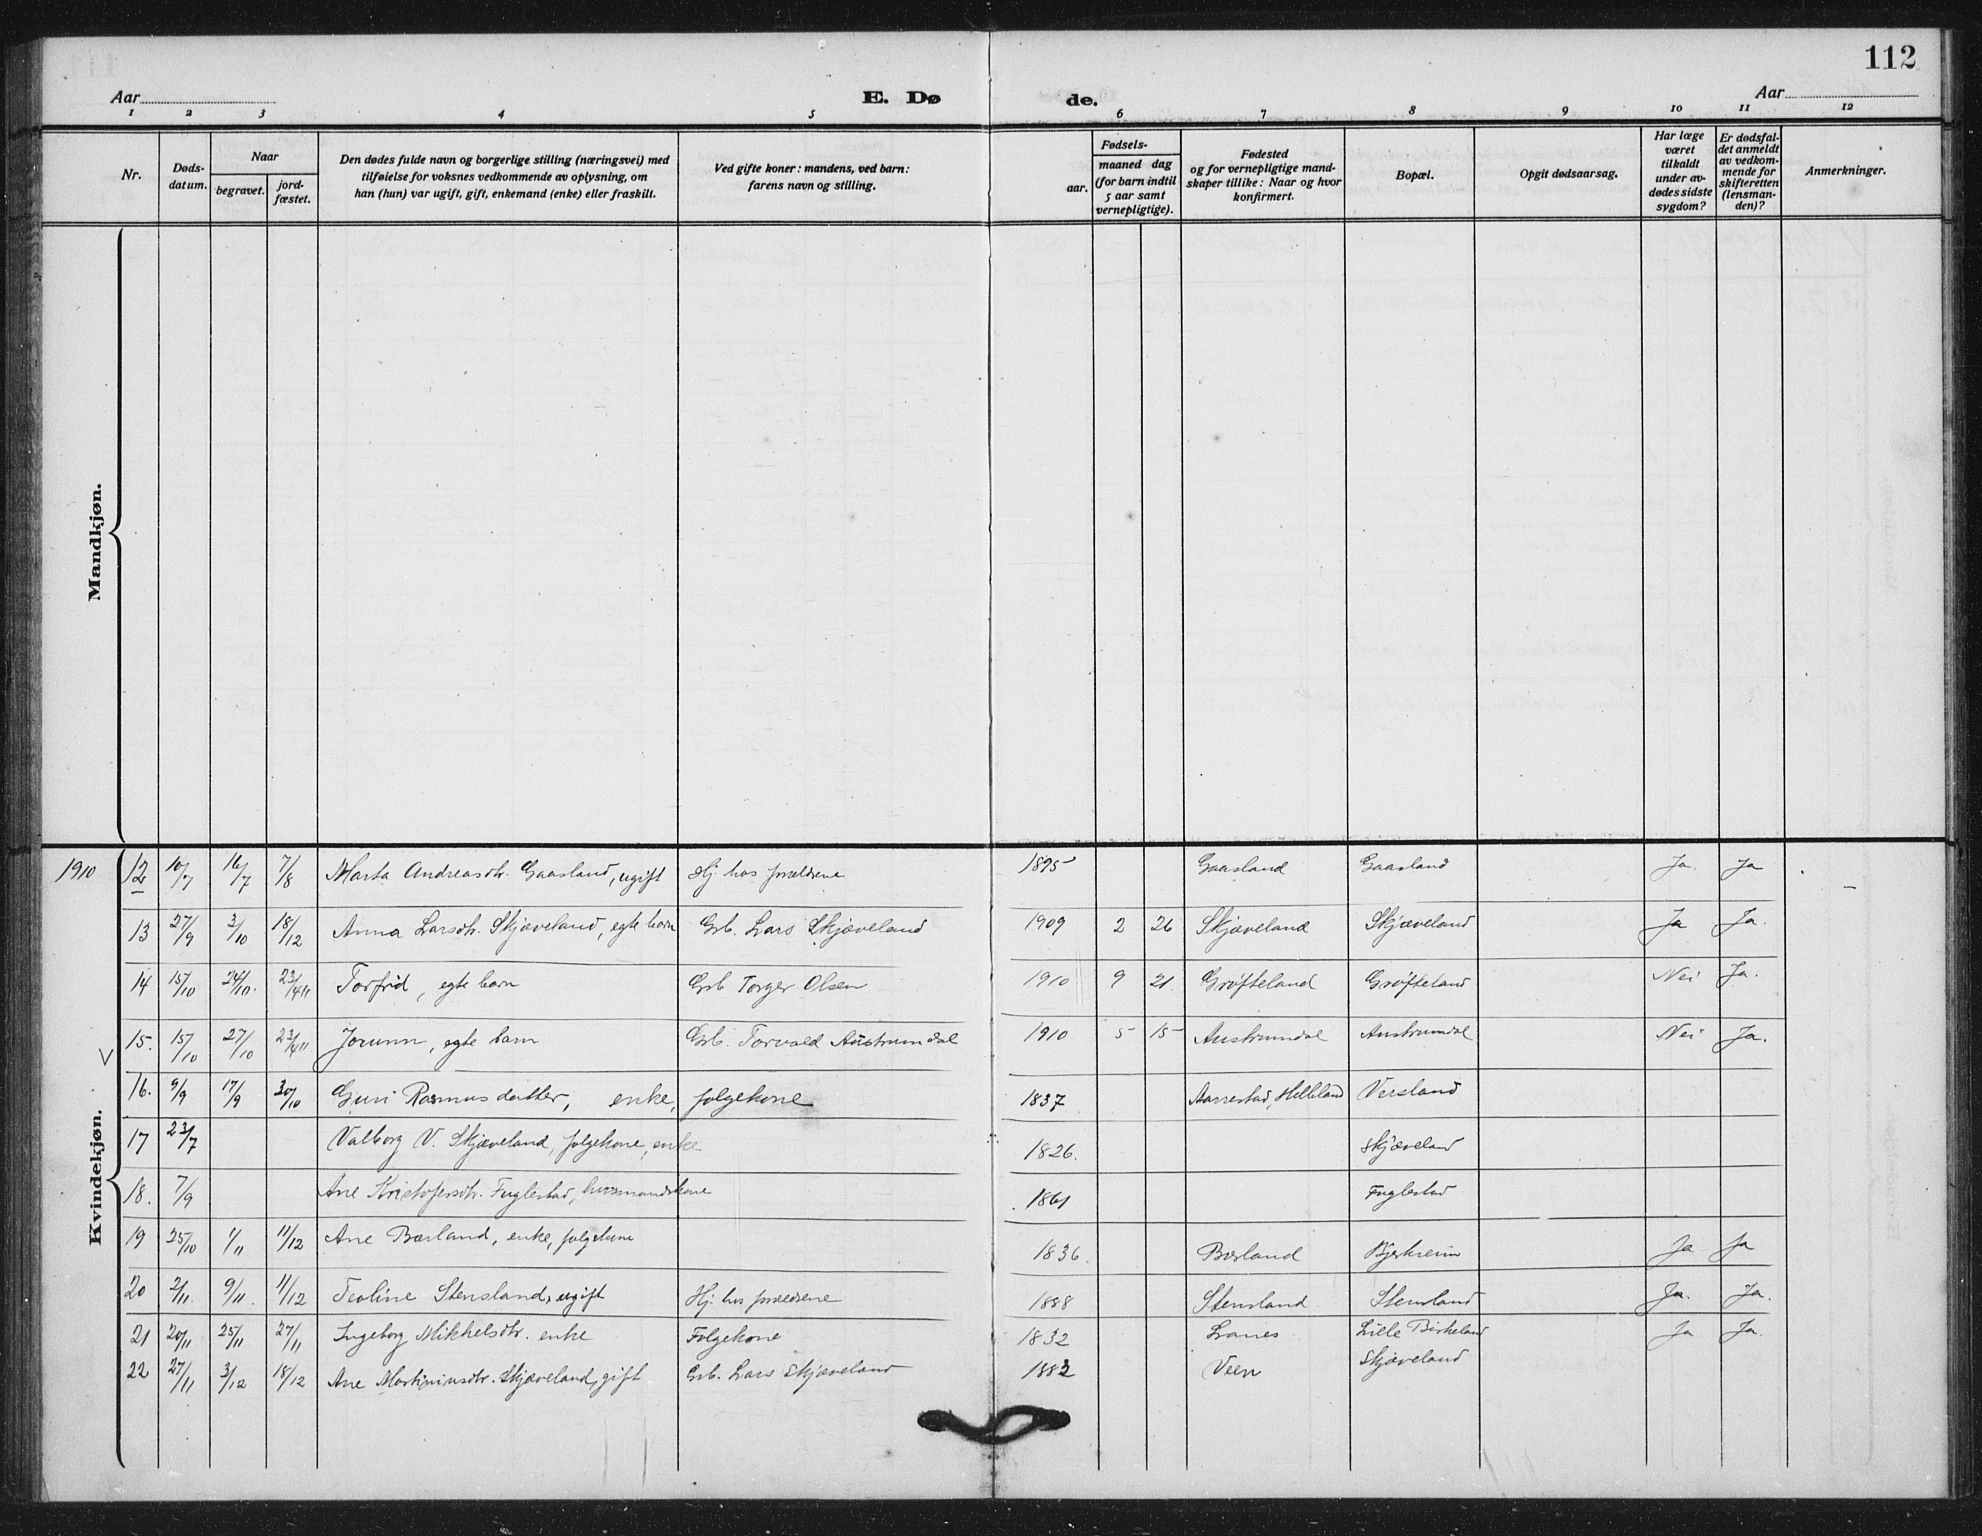 112
Aar
E. Dø
de.
Aar
1 2 3 4 5 6 7 8 9 10 11 12
Nr.
Døds-
datum.
Naar
begravet.
jord-
fæstet.
Den dødes fulde navn og borgerlige stilling (næringsvei) med
tilføielse for voksnes vedkommende av oplysning, om
han (hun) var ugift, gift, enkemand (enke) eller fraskilt.
Ved gifte koner: mandens, ved barn:
farens navn og stilling.
Fødsels-
aar.
maaned dag
(for barn indtil
5 aar samt
vernepligtige).
Fødested
og for vernepligtige mand-
skaper tillike: Naar og hvor
konfirmert.
Bopæl.
Opgit dødsaarsag.
Har læge
været
tilkaldt
under av-
dødes sidste
sygdom?
Er dødsfal-
det anmeldt
av vedkom-
mende for
skifteretten
(lensman-
den)?
Anmerkninger.
Mandkjøn.
Kvindekjøn.
1910 12 10/7 16/7 7/8 Marta Andreasdtr. Gaasland, ugift Hj. hos forældrene 1895 Gaasland Gaasland Ja. Ja
13 27/9 3/10 18/12 Anna Larsdtr. Skjæveland, egte barn Grb. Lars Skjæveland 1909 2 26 Skjæveland Skjæveland Ja Ja.
14 15/10 24/10. 23/4 11 Torfrid, egte barn Grb Torger Olsen 1910 9 21 Grøfteland Grøfteland Nei Ja.
15. 15/10 27/10 23/4 11 Jorunn, egte barn Grb. Torvald Austrumdal 1910 5 15 Austrumdal Austrumdal Nei Ja.
16. 9/9 17/9 30/10 Guri Rasmusdatter, enke, folgekone 1837 Aarrestad, Helleland Versland
17 23/7 Valborg V. Skjæveland, folgekone, enke 1826. Skjæveland
18. 7/9 Ane Kristofersdtr. Fuglestad, husmandskone 1861 Fuglestad
19 25/10 1/11 11/12 Ane Børland, enke, folgekone 1836. Børland Bjerkreim Ja Ja
20 2/11. 9/11. 11/12 Teoline Stensland, ugift Hj. hos forældrene 1888 Stensland Stensland Ja. Ja.
21 20/11 25/11 27/11 Ingeborg Mikkelsdtr. enke Folgekone 1832 Lanes Lille Birkeland Ja Ja.
22 27/11 3/12 18/12 Ane Martiniusdtr. Skjæveland, gift Grb. Lars Skjæveland 1882 Veen Skjæveland